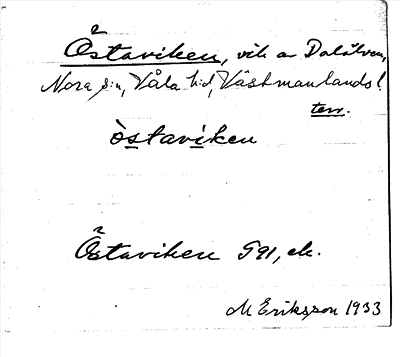 Östaviken, vik av Dalälven,
Nora sn, Våla hd, Västmanlands l.
terr.
òstaviken
Östaviken G91, ek.
M Eriksson 1933